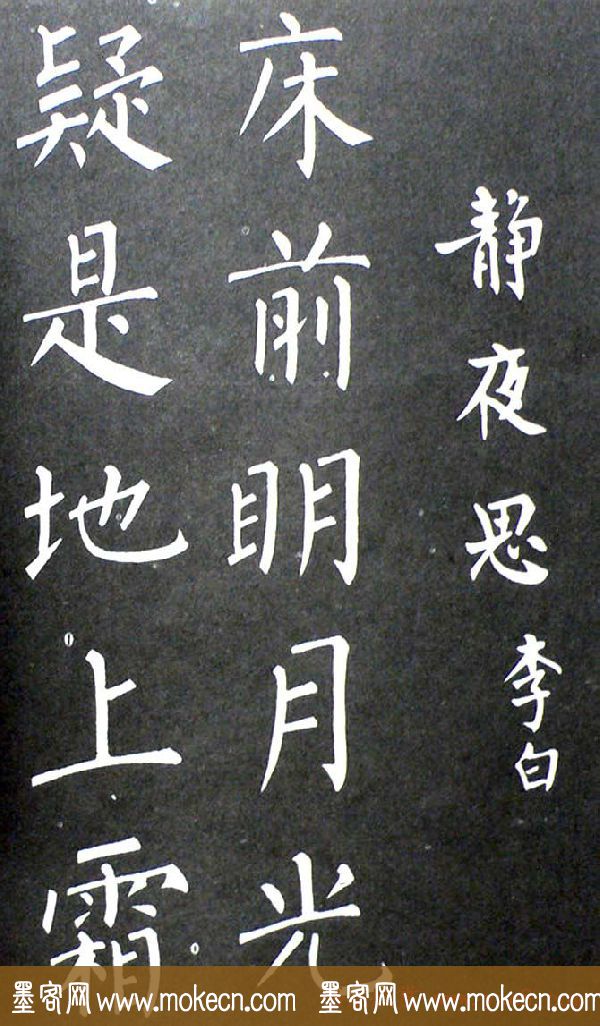 静夜思 李白
床前明月光
疑是地上霜
墨客网 www.mokecn.com 墨客网 www.mokecn.com